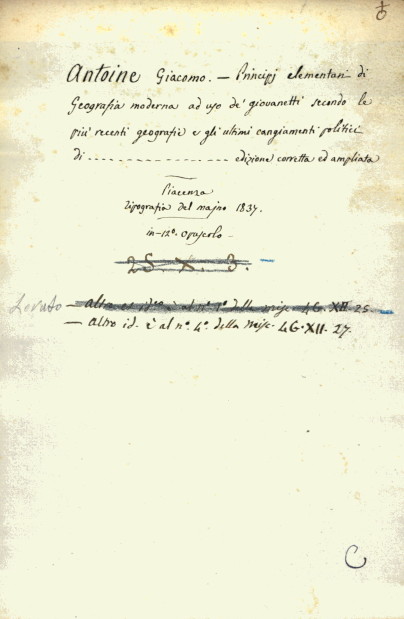 Antoine Giacomo. — Principj elementari di
Geografia moderna ad uso de' giovanetti secondo le
più recenti geografie e gli ultimi cangiamenti politici
di - - - - - - - - - - - - - - edizione corretta ed ampliata
Piacenza
Tipografia del majno 1837.
in-12º. opuscolo -
25. X. 3.
Levato — altro es. id. è al nº. 1º. della misc. 4G. XII. 25.
— Altro id. è al nº. 4º. della misc. 4G. XII. 27.
C